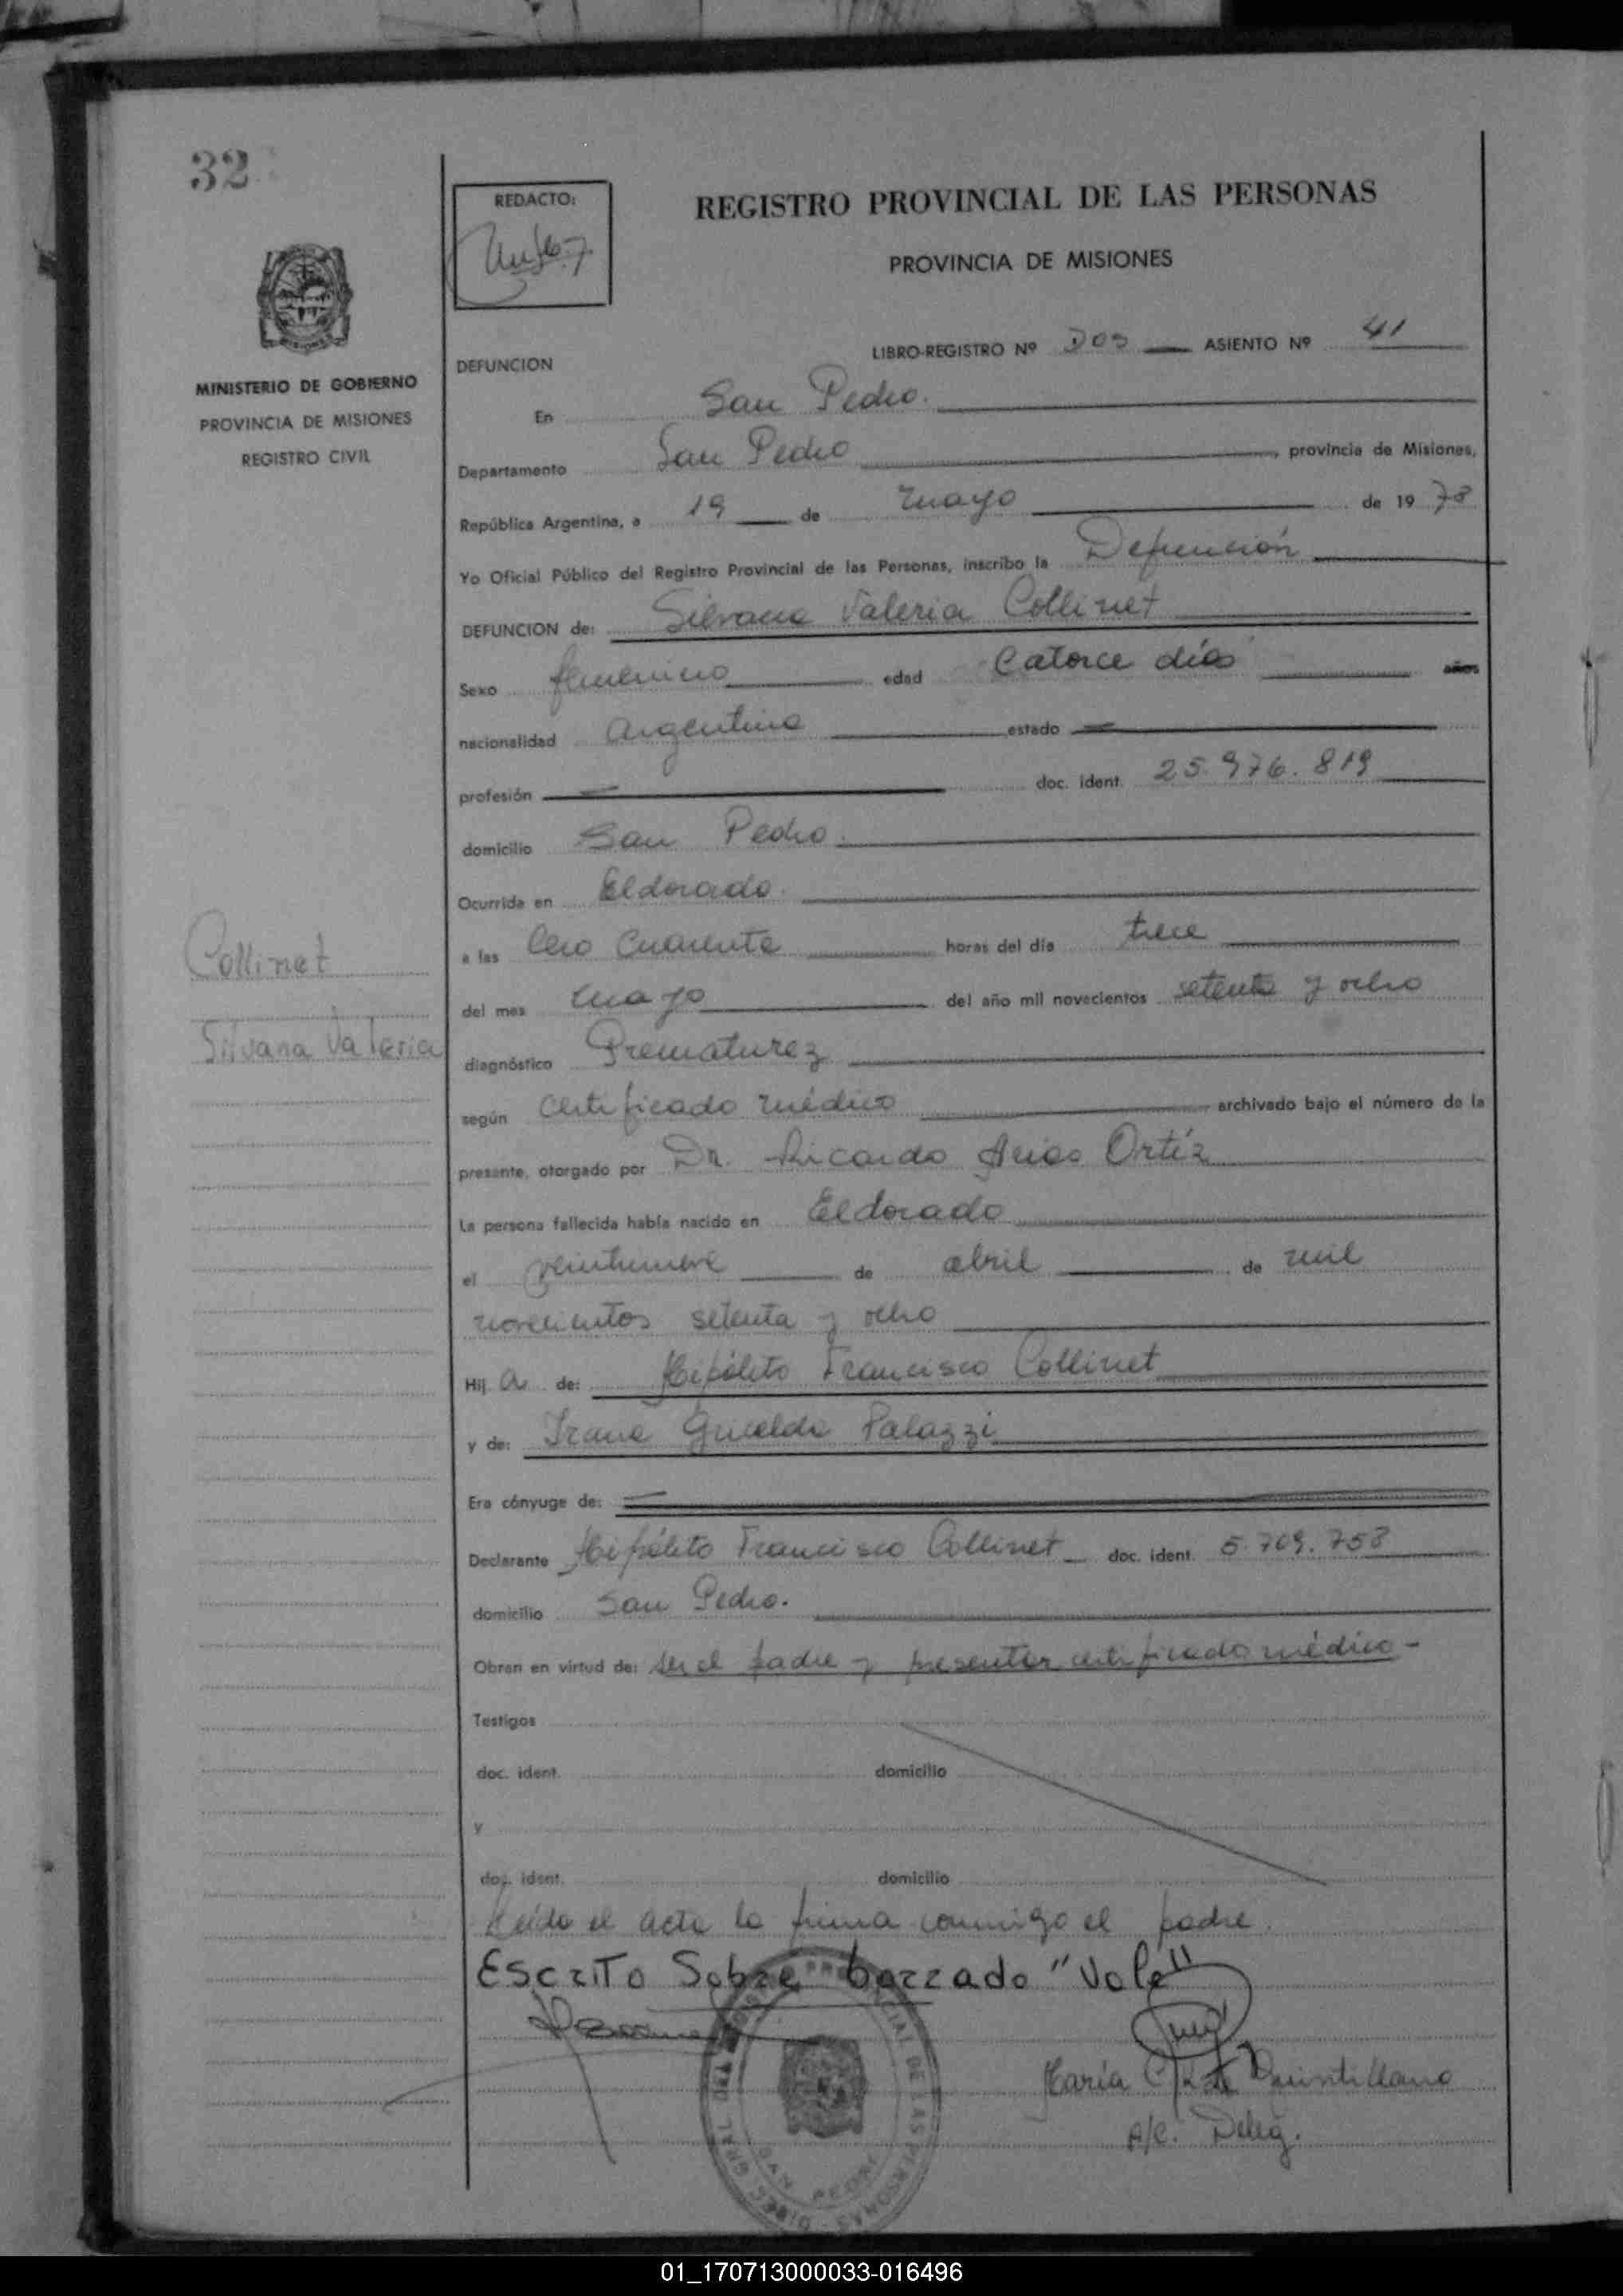 32
REDACTO:
REGISTRO PROVINCIAL DE LAS PERSONAS
PROVINCIA DE MISIONES
MINISTERIO DE GOBIERNO
PROVINCIA DE MISIONES
REGISTRO CIVIL
LIBRO-REGISTRO Nº Dos ASIENTO Nº 41
DEFUNCION
En San Pedro.
Departamento San Pedro, provincia de Misiones,
República Argentina, a 19 de mayo de 1978
Yo Oficial Público del Registro Provincial de las Personas, inscribo la Defunción
DEFUNCION de: Silvana Valeria Collinet
Sexo femenino edad Catorce días años
nacionalidad Argentina estado —
profesión — doc. ident. 25.976.819
domicilio San Pedro.
Ocurrida en Eldorado.
a las Cero Cuarenta horas del día trece
del mes mayo del año mil novecientos setenta y ocho
diagnóstico Prematurez
según Certificado médico archivado bajo el número de la
presente, otorgado por Dr. Ricardo Arias Ortíz
La persona fallecida había nacido en Eldorado
el veintinueve de abril de mil
novecientos setenta y ocho
Hij a de: Hipólito Francisco Collinet
y de: Palazzi
Era cónyuge de: —
Declarante Hipólito Francisco Collinet doc. ident. 5.709.758
domicilio San Pedro.
Obran en virtud de: ser el padre y presentar certificado médico -
Testigos
doc. ident. domicilio
y
doc. ident. domicilio
Leída el acta la firma conmigo el padre.
Escrito Sobre borrado "Vale"
María Quintillana
A/C. Deleg.
Collinet
Silvana Valeria
SAN PEDRO
01_170713000033-016496